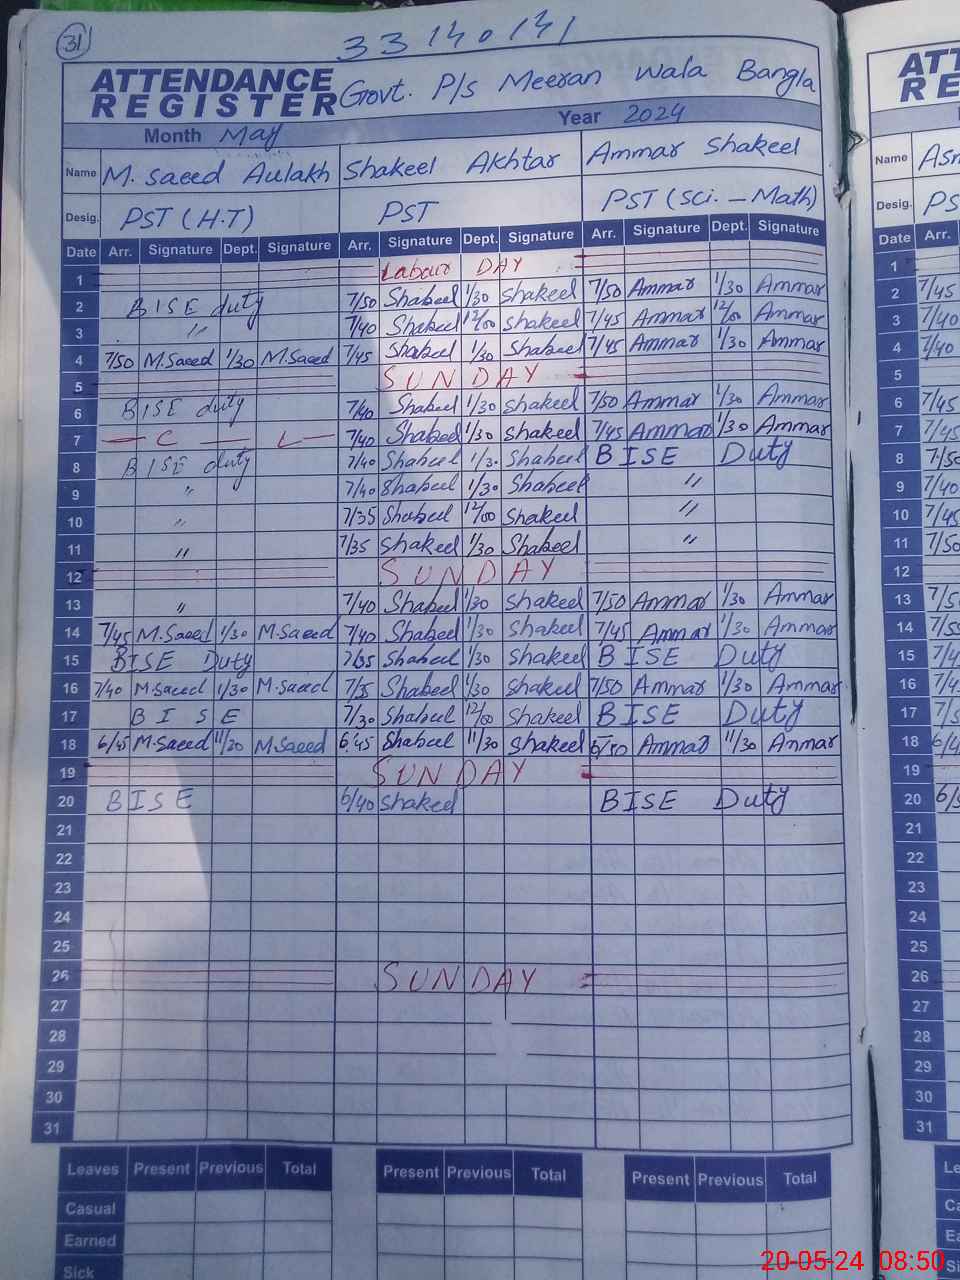 31
33140141
ATTENDANCE
REGISTER
Govt. P/s Meeran Wala Bangla
Month May
Year 2024
Name M. Saeed Aulakh Shakeel Akhtar Ammar Shakeel
Desig. PST (H.T) PST PST (Sci. - Math)
Date Arr. Signature Dept. Signature Arr. Signature Dept. Signature Arr. Signature Dept. Signature
1 Labour DAY
2 BISE duty 7/50 Shakeel 1/30 Shakeel 7/50 Ammar 1/30 Ammar
3 " 7/40 Shakeel 12/00 Shakeel 7/45 Ammar 12/00 Ammar
4 7/50 M.Saeed 1/30 M.Saeed 7/45 Shakeel 1/30 Shakeel 7/45 Ammar 1/30 Ammar
5 SUNDAY
6 BISE duty 7/40 Shakeel 1/30 Shakeel 7/50 Ammar 1/30 Ammar
7 — C — L — 7/40 Shakeel 1/30 Shakeel 7/45 Ammar 1/30 Ammar
8 BISE duty 7/40 Shakeel 1/3. Shakeel BISE Duty
9 " 7/40 Shakeel 1/30 Shakeel "
10 " 7/35 Shakeel 12/00 Shakeel "
11 " 7/35 Shakeel 1/30 Shakeel "
12 SUNDAY
13 " 7/40 Shakeel 1/30 Shakeel 7/50 Ammar 1/30 Ammar
14 7/45 M.Saeed 1/30 M.Saeed 7/40 Shakeel 1/30 Shakeel 7/45 Ammar 1/30 Ammar
15 BISE Duty 7/35 Shakeel 1/30 Shakeel BISE Duty
16 7/40 M.Saeed 1/30 M.Saeed 7/35 Shakeel 1/30 Shakeel 7/50 Ammar 1/30 Ammar
17 BISE 7/30 Shakeel 12/00 Shakeel BISE Duty
18 6/45 M.Saeed 11/30 M.Saeed 6/45 Shakeel 11/30 Shakeel 6/50 Ammar 11/30 Ammar
19 SUNDAY
20 BISE 6/40 Shakeel BISE Duty
21
22
23
24
25
26 SUNDAY
27
28
29
30
31
Leaves Present Previous Total Present Previous Total Present Previous Total
Casual
Earned
Sick
ATT
RE
Name Asm
Desig. PS
Date Arr.
1
2 7/45
3 7/40
4 7/40
5
6 7/45
7 7/45
8 7/50
9 7/40
10 7/45
11 7/50
12
13
14
15
16
17
18
19
20
21
22
23
24
25
26
27
28
29
30
31
20-05-24 08:50